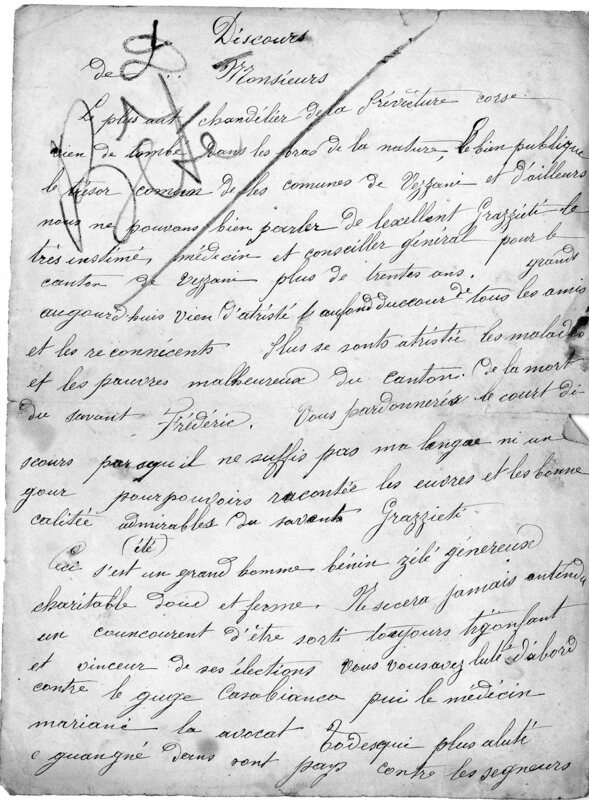 Discours
de Monsieurs
Le plus aut chandélier de la Prévecture corse
vien de tombé dans les bras de la nature, le bien publique
le trésor comun de les comunes de Vezzani et d'ailleurs
nous ne pouvans bien parler de lexellent Grazzieti le
trés instimé, médecin et conseiller général pour le
canton de Vezzani plus de trentes ans. grands
augourdhuis vien d'atristé aufond duccour de tous les amis
et les reconnicents Plus se sonts atristée les malades
et les pauvres malheureux du canton. De la mort
du savant Frédéric. Vous pardonnerés le court di
scours parsqu il ne suffis pas ma langue ni un
gour pourpouvoirs racontée les euvres et les bonne
calitée admirables du savant Grazzieti
(été)
Ceci s'est un grand homme bénin zélé génereux
charitable doux et ferme. Ne sicera jamais entendu
un councourent d'être sorti toujours trionfant
et vinceur de ses élections vous vousavez luté d'abord
contre le guge Casabianca pui le médicin
mariani la avocat Todesqui plus aluté
e guangné dans vont pays contre les segneurs